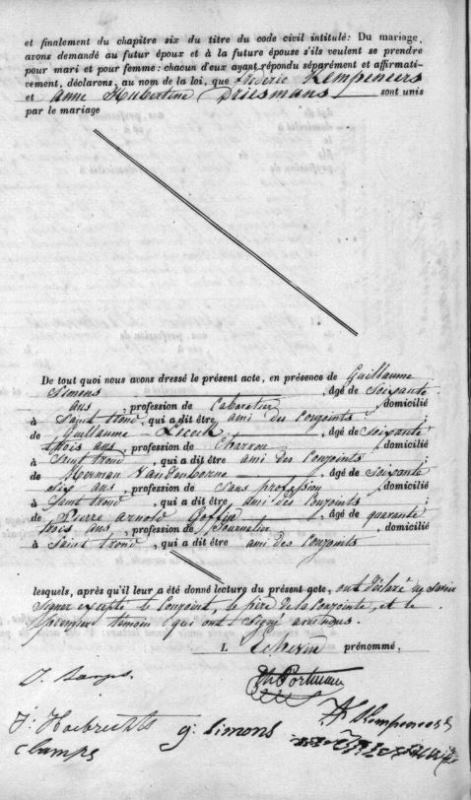 et finalement du chapitre six du titre du code civil intitulé: Du mariage,
avons demandé au futur époux et à la future épouse s'ils veulent se prendre
pour mari et pour femme: chacun d'eux ayant répondu séparément et affirmati-
cement, déclarons, au nom de la loi, que frédéric Kempeneers
et anne Hubertine Driesmans sont unis
par le mariage
De tout quoi nous avons dressé le présent acte, en présence de Guillaume
Simons, âgé de Soixante
ans, profession de Cabaretier, domicilié
à Saint trond, qui a dit être ami des Conjoints;
de Guillaume, âgé de Soixante
trois ans, profession de Charron, domicilié
à Saint trond, qui a dit être ami des Conjoints;
de Herman Vandenborne, âgé de Soixante
six ans, profession de Sans profession, domicilié
à Saint trond, qui a dit être ami des Conjoints;
de Pierre Arnold Goffin, âgé de quarante
trois ans, profession de Journalier, domicilié
à Saint trond, qui a dit être ami des Conjoints
lesquels, après qu'il leur a été donné lecture du présent acte, ont déclaré ne savoir
Signer excepté le Conjoint, le père de la Conjointe, et le
premier témoin qui ont Signé avec nous.
L'Echevin prénommé,
g. Simons
Kempeneers